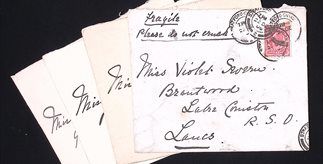 Fragile
Please do not crush
Miss Violet Severn
Brantwood
Lake Coniston
R.S.O
Lancs
Miss
Miss